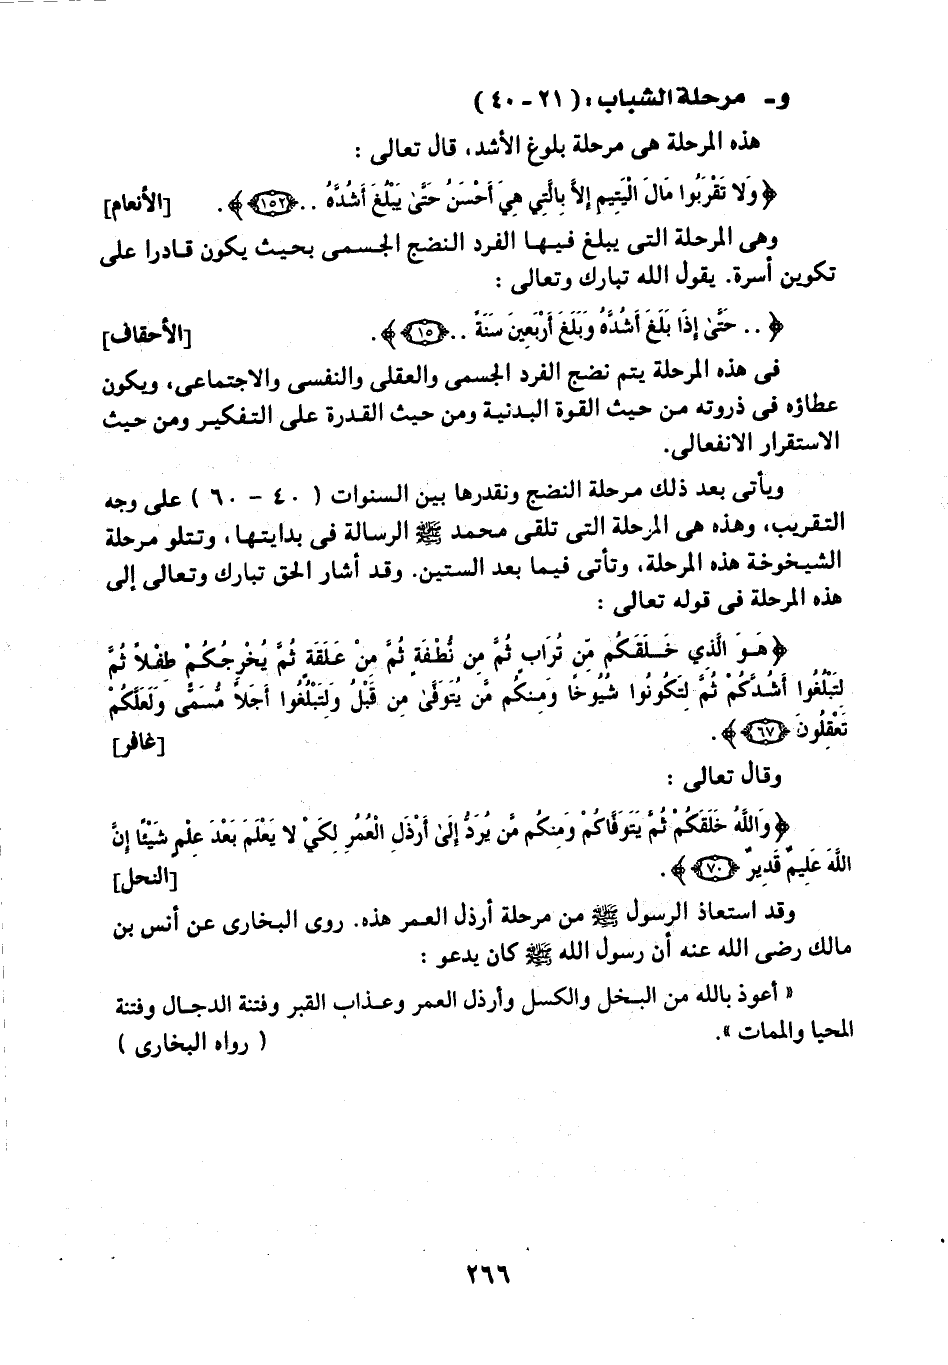 و- مرحلة الشباب : ( ٢١ - ٤٠ )
هذه المرحلة هى مرحلة بلوغ الأشد، قال تعالى :
﴿ وَلا تَقْرَبُوا مَالَ الْيَتِيمِ إِلاَّ بِالَّتِي هِيَ أَحْسَنُ حَتَّىٰ يَبْلُغَ أَشُدَّهُ .. ﴿١٥٢﴾ ﴾ . [الأنعام]
وهى المرحلة التى يبلغ فيها الفرد النضج الجسمى بحيث يكون قادرا على
تكوين أسرة. يقول الله تبارك وتعالى :
﴿ .. حَتَّىٰ إِذَا بَلَغَ أَشُدَّهُ وَبَلَغَ أَرْبَعِينَ سَنَةً .. ﴿١٥﴾ ﴾ . [الأحقاف]
فى هذه المرحلة يتم نضج الفرد الجسمى والعقلى والنفسى والاجتماعى، ويكون
عطاؤه فى ذروته من حيث القوة البدنية ومن حيث القدرة على التفكير ومن حيث
الاستقرار الانفعالى.
ويأتى بعد ذلك مرحلة النضج ونقدرها بين السنوات ( ٤٠ - ٦٠ ) على وجه
التقريب، وهذه هى المرحلة التى تلقى محمد ﷺ الرسالة فى بدايتها، وتتلو مرحلة
الشيخوخة هذه المرحلة، وتأتى فيما بعد الستين. وقد أشار الحق تبارك وتعالى إلى
هذه المرحلة فى قوله تعالى :
﴿ هُوَ الَّذِي خَلَقَكُم مِّن تُرَابٍ ثُمَّ مِن نُّطْفَةٍ ثُمَّ مِنْ عَلَقَةٍ ثُمَّ يُخْرِجُكُمْ طِفْلاً ثُمَّ
لِتَبْلُغُوا أَشُدَّكُمْ ثُمَّ لِتَكُونُوا شُيُوخًا وَمِنكُم مَّن يُتَوَفَّىٰ مِن قَبْلُ وَلِتَبْلُغُوا أَجَلاً مُّسَمًّى وَلَعَلَّكُمْ
تَعْقِلُونَ ﴿٦٧﴾ ﴾ . [غافر]
وقال تعالى :
﴿ وَاللَّهُ خَلَقَكُمْ ثُمَّ يَتَوَفَّاكُمْ وَمِنكُم مَّن يُرَدُّ إِلَىٰ أَرْذَلِ الْعُمُرِ لِكَيْ لا يَعْلَمَ بَعْدَ عِلْمٍ شَيْئًا إِنَّ
اللَّهَ عَلِيمٌ قَدِيرٌ ﴿٧٠﴾ ﴾ . [النحل]
وقد استعاذ الرسول ﷺ من مرحلة أرذل العمر هذه. روى البخارى عن أنس بن
مالك رضى الله عنه أن رسول الله ﷺ كان يدعو :
« أعوذ بالله من البخل والكسل وأرذل العمر وعذاب القبر وفتنة الدجال وفتنة
المحيا والممات ». ( رواه البخارى )
٢٦٦